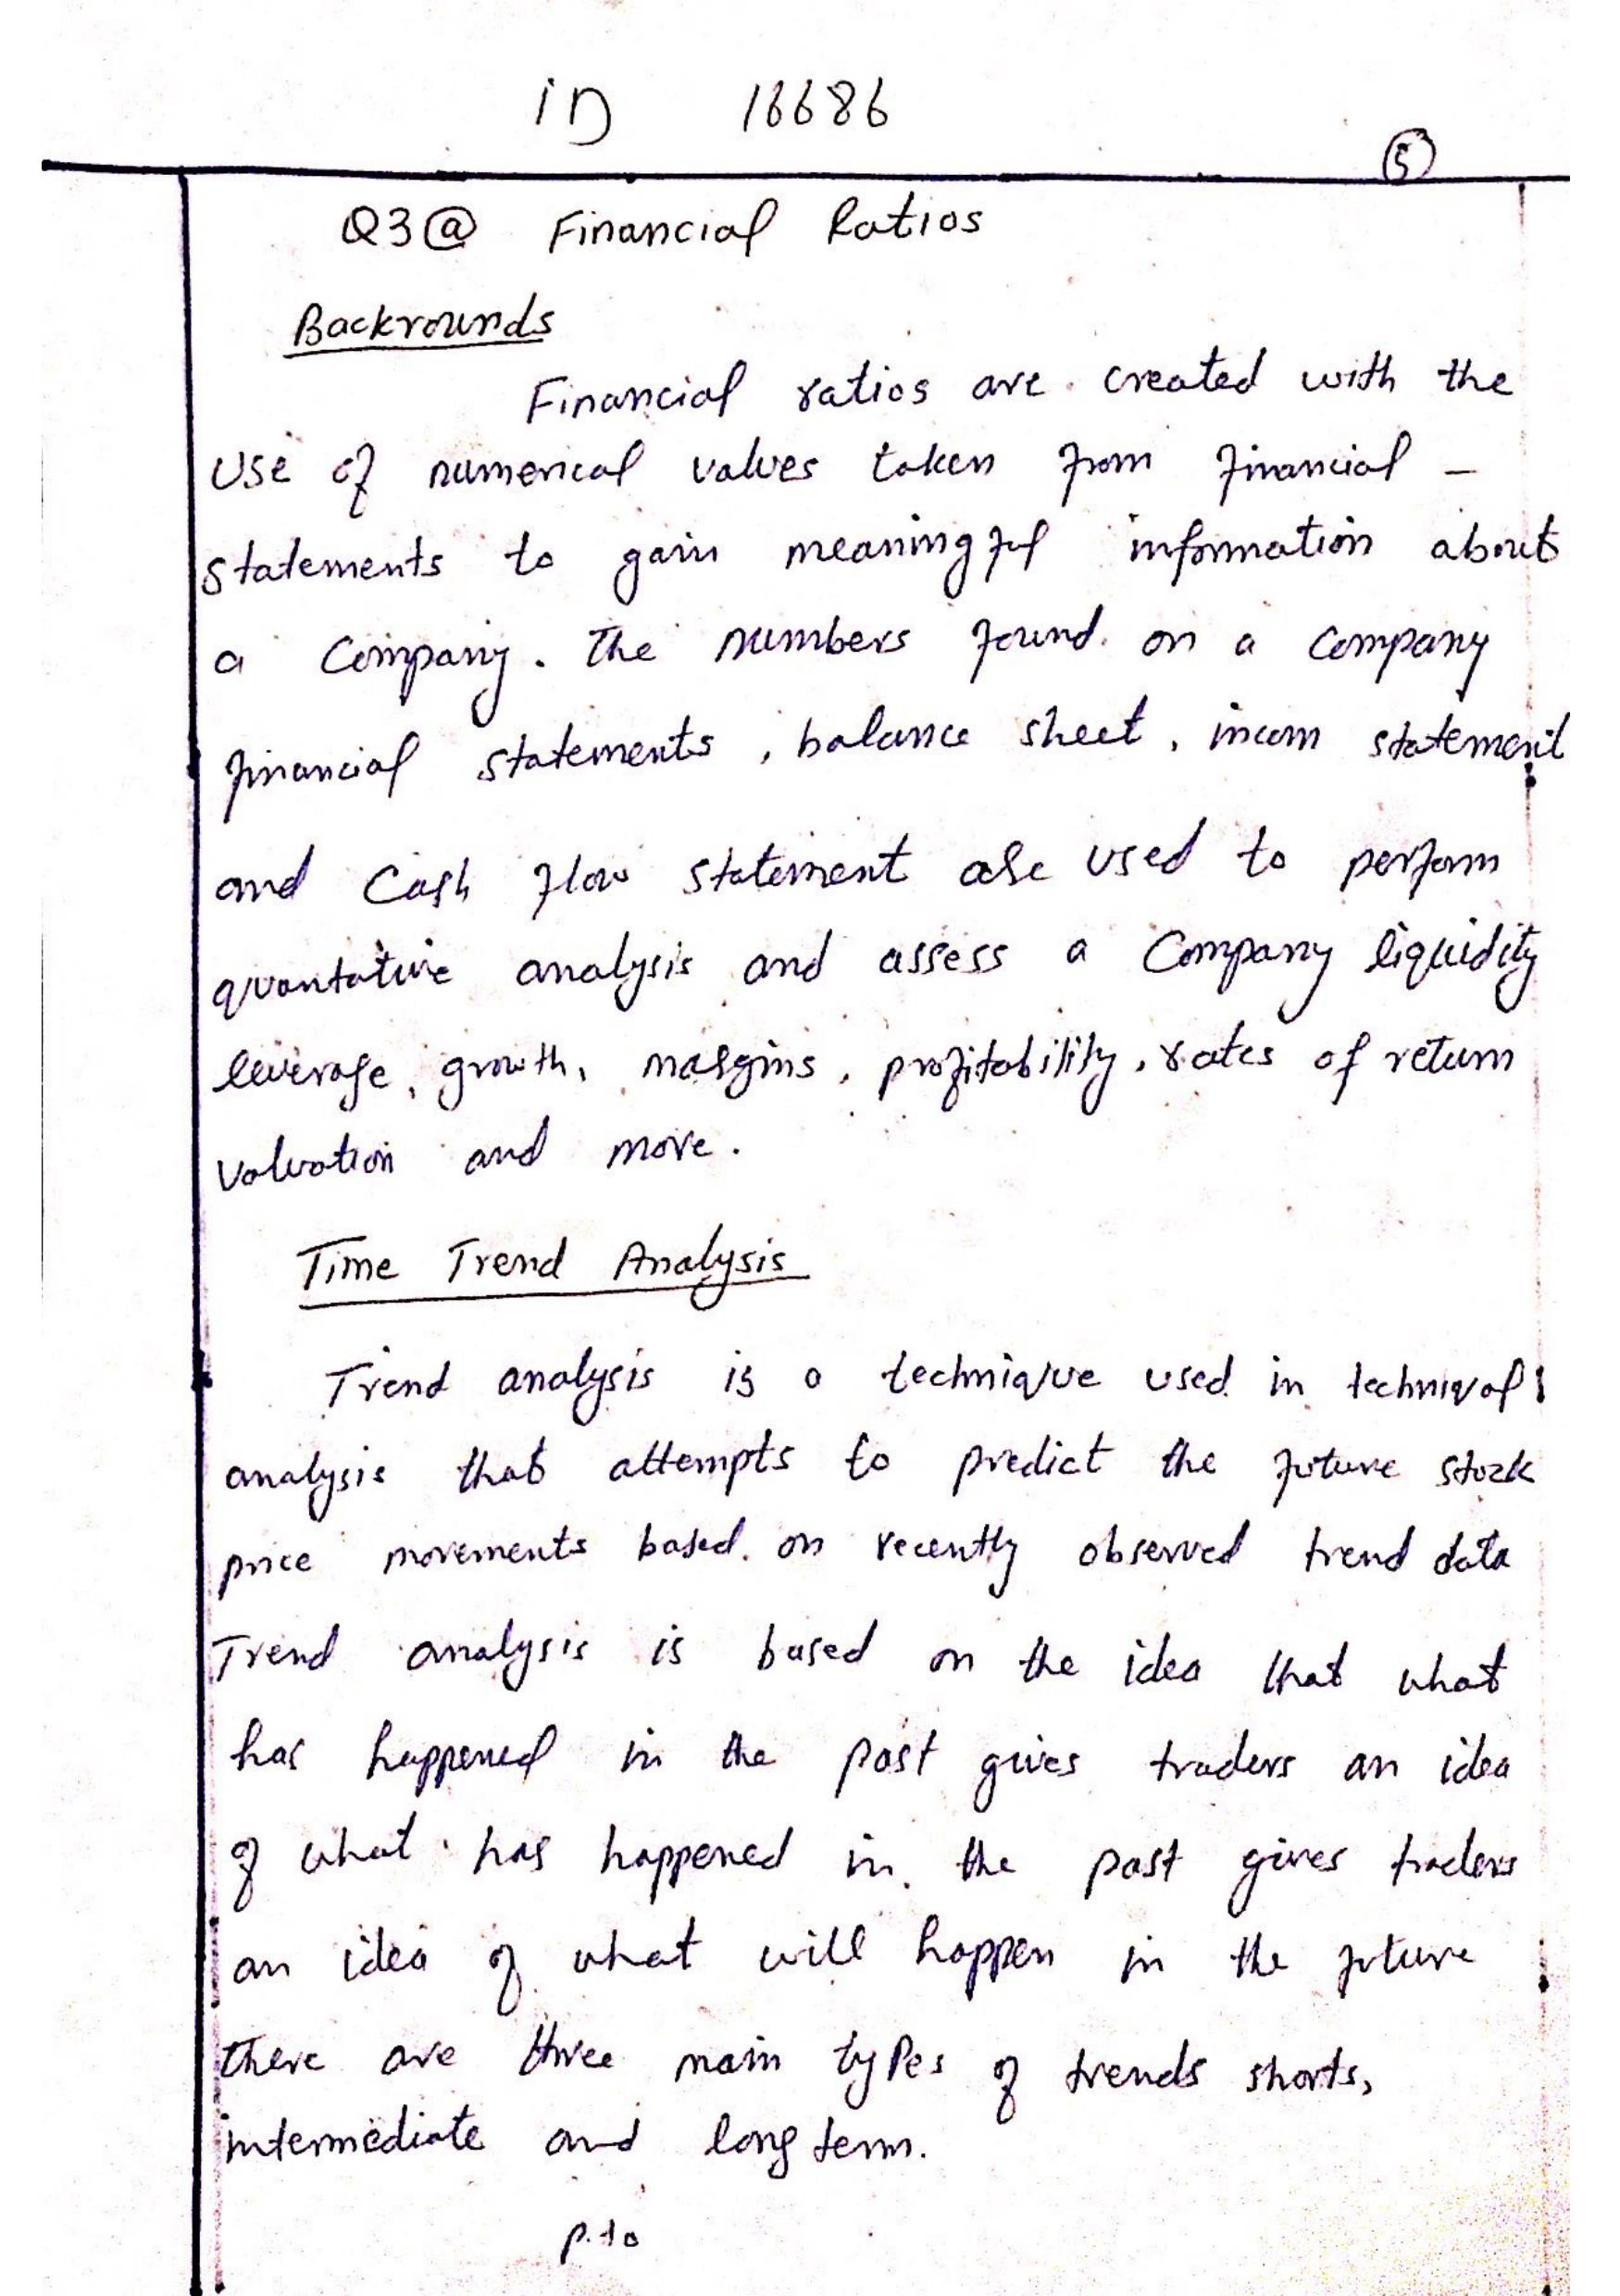 iD 16686
5
Q3@ Financial Ratios
Backrounds
Financial ratios are created with the
use of numerical values taken from financial –
statements to gain meaningful information about
a Company. The numbers found on a company
financial statements, balance sheet, incom statement
and Cash flow statement are used to perform
quantative analysis and assess a Company liquidity
leverage, growth, margins, profitability, rates of return
valuation and more.
Time Trend Analysis
Trend analysis is a technique used in techniqal
analysis that attempts to predict the future stock
price movements based on recently observed trend data
Trend analysis is based on the idea that what
has happened in the past gives traders an idea
of what has happened in the past gives traders
an idea of what will happen in the future
there are three main types of trends shorts,
intermediate and long term.
p.to